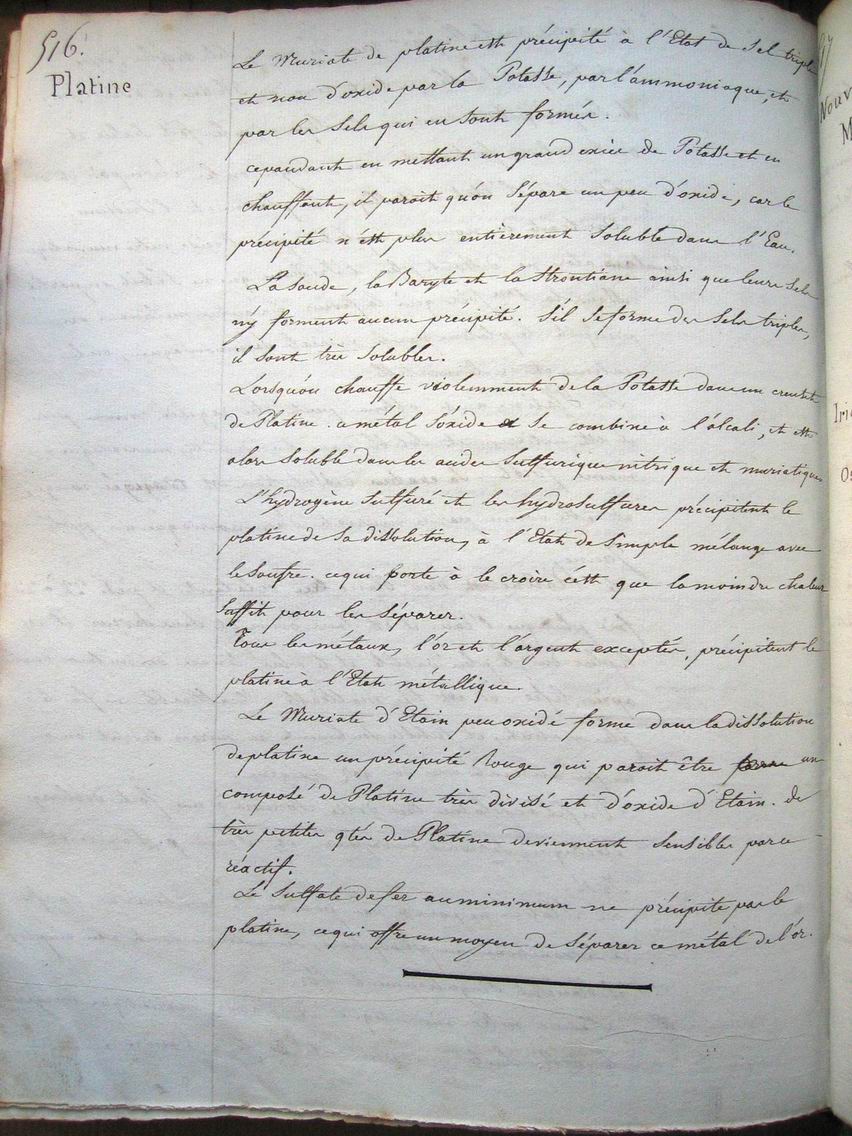 516.
Platine
Le Muriate de platine est précipité à l'Etat de Sel triple
et non d'oxide par la Potasse, par l'ammoniaque, et
par les Sels qui en sont formés.
cependant en mettant un grand excès de Potasse et en
chauffant, il parait qu'on Sépare un peu d'oxide, car le
précipité n'est plus entièrement Soluble dans l'Eau.
La Soude, la Baryte et la Strontiane ainsi que leurs Sels
n'y forment aucun précipité. S'il Se forme des Sels triples,
il sont très Solubles.
Lorsqu'on chauffe violemment de la Potasse dans un creuset
de Platine. ce métal S'oxide et Se combine à l'alcali, et est
alors Soluble dans les acides Sulfurique nitrique et muriatique
L'hydrogène Sulfuré et les hydrosulfures précipitent le
platine de Sa dissolution, à l'Etat de Simple mélange avec
le Soufre. ce qui porte à le croire c'est que la moindre chaleur
Suffit pour les Séparer.
Tous les métaux, l'or et l'argent exceptés, précipitent le
platine à l'Etat métallique.
Le Muriate d'Etain peu oxidé forme dans la dissolution
de platine un précipité rouge qui parait être un
composé de Platine très divisé et d'oxide d'Etain. de
très petites qtés de Platine deviennent Sensibles par ce
réactif.
Le Sulfate de fer au minimum ne précipite pas le
platine, ce qui offre un moyen de Séparer ce métal de l'or.
Nouv
M
Iri
Os